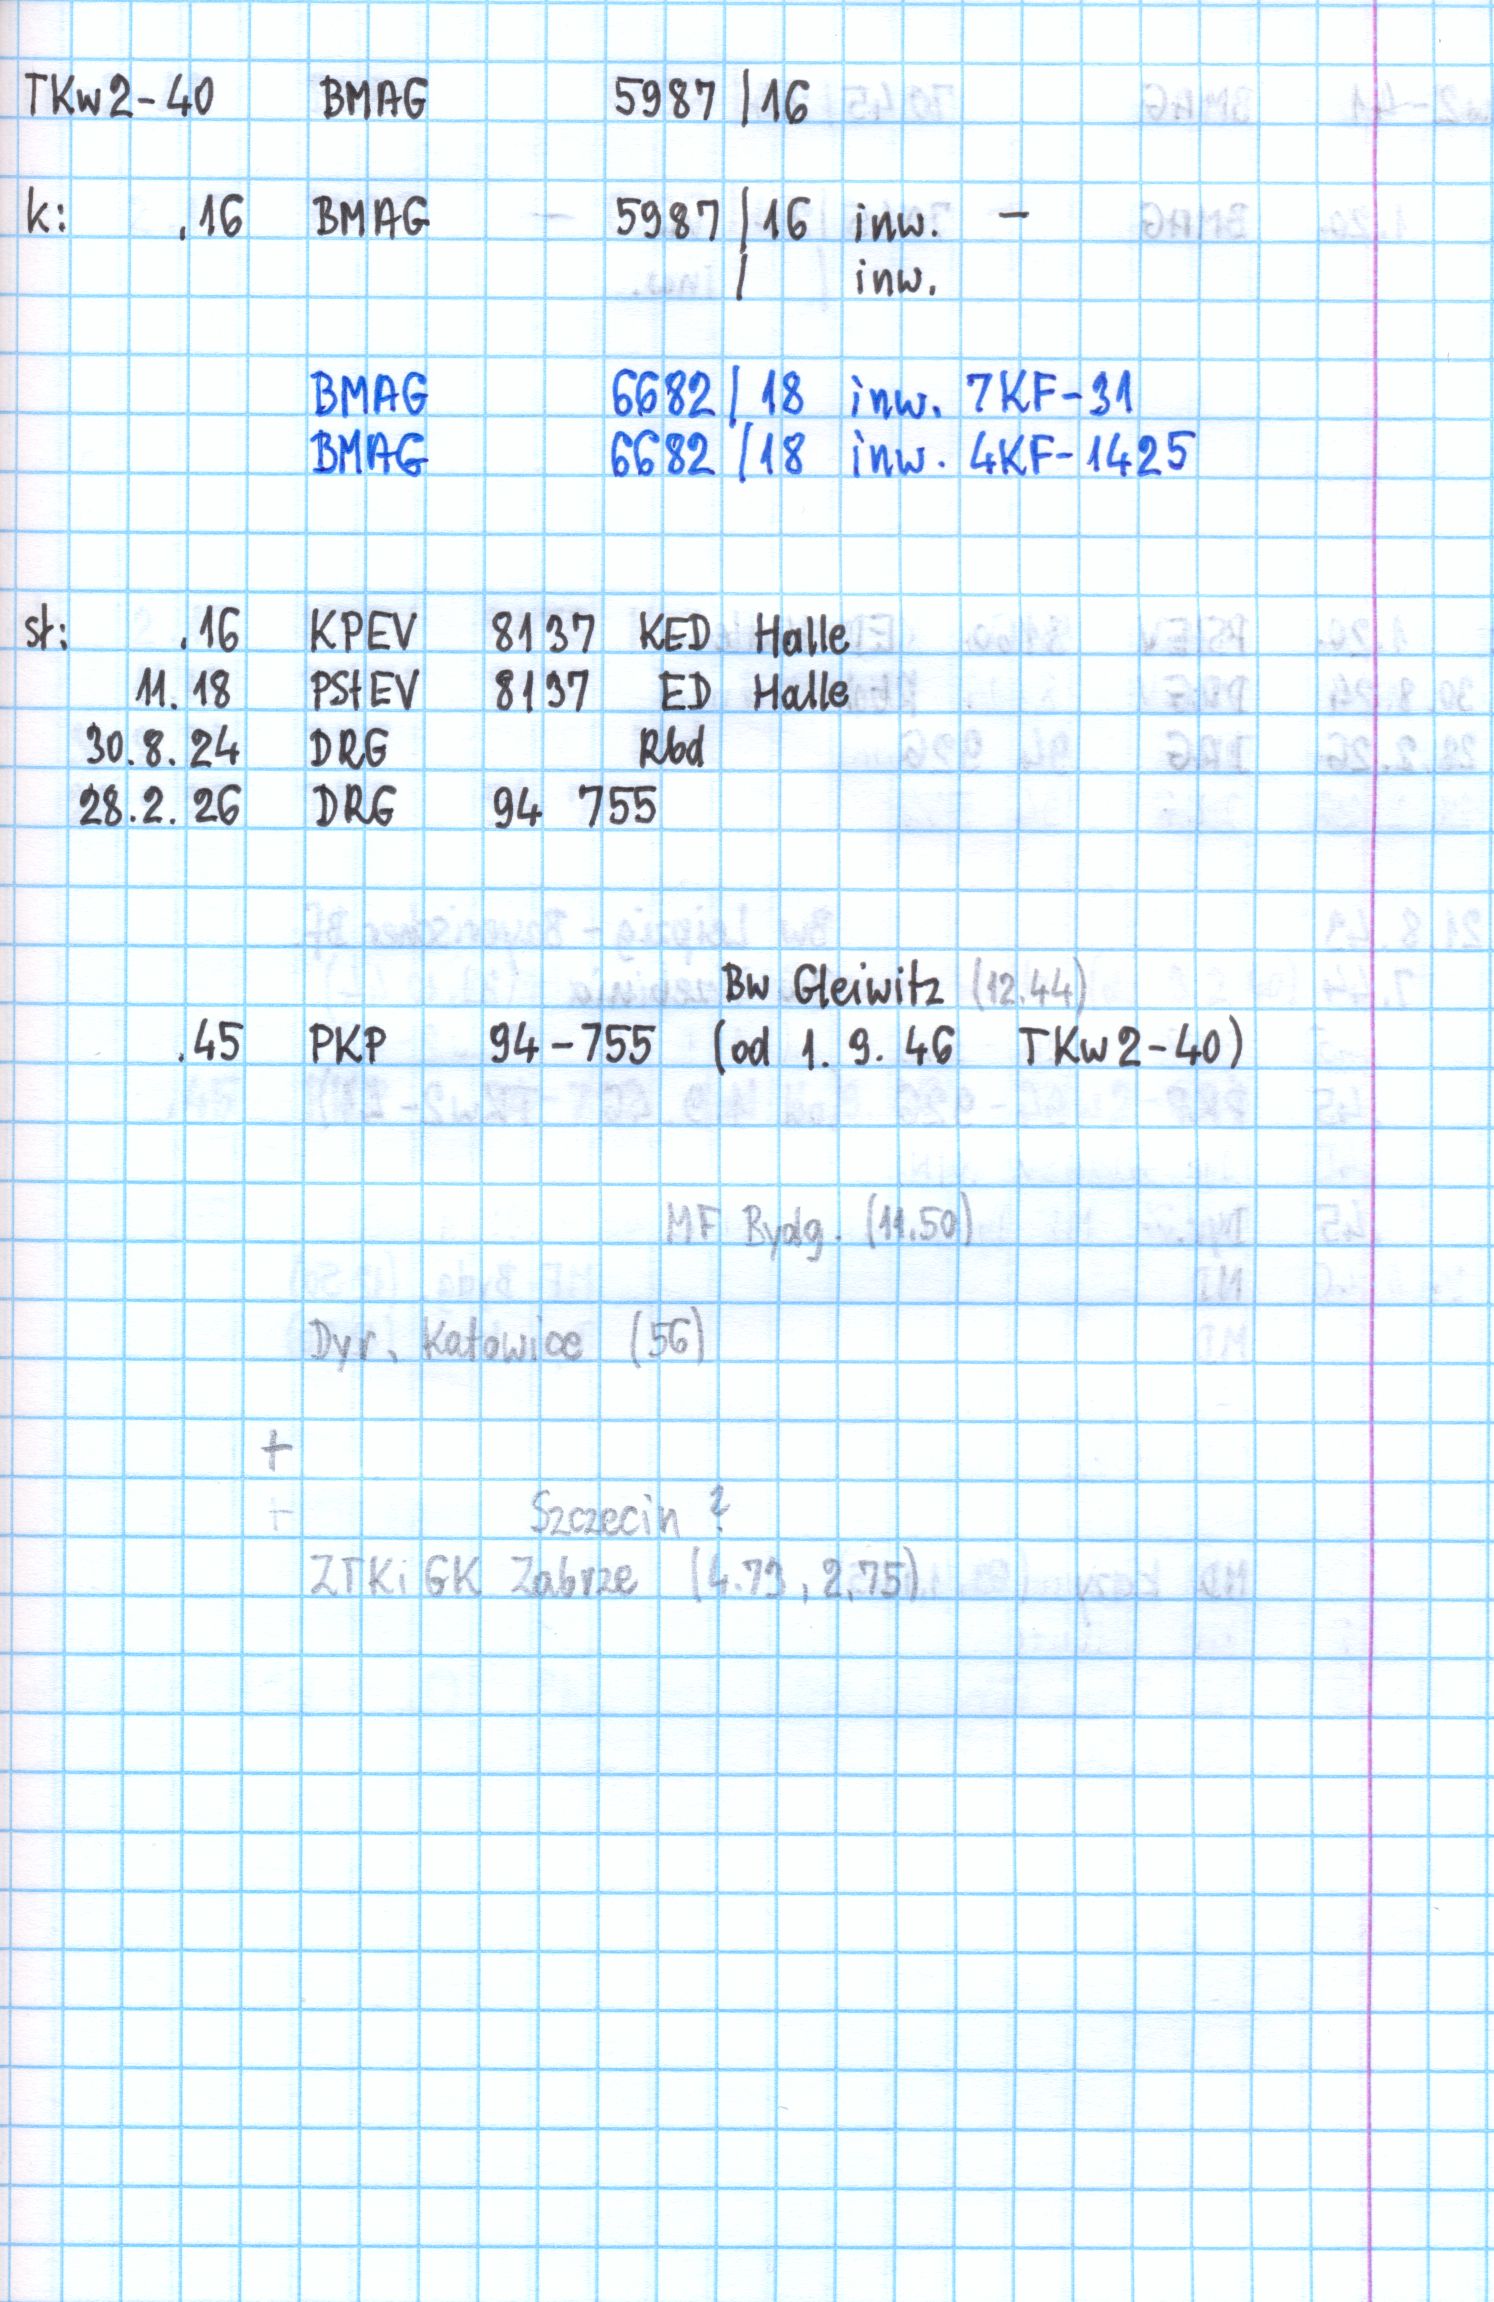 TKw2-40 BMAG 5987/16
k: .16 BMAG 5987/16 inw. -
/ inw.
BMAG 6682/18 inw. 7KF-31
BMAG 6682/18 inw. 4KF-1425
st: .16 KPEV 8137 KED Halle
11.18 PStEV 8137 ED Halle
30.8.24 DRG Rbd
28.2.26 DRG 94 755
Bw Gleiwitz (12.44)
.45 PKP 94-755 (od 1.9.46 TKw2-40)
MF Bydg. (11.50)
Dyr. Katowice (56)
+
+ Szczecin ?
ZTKiGK Zabrze (4.73, 2.75)